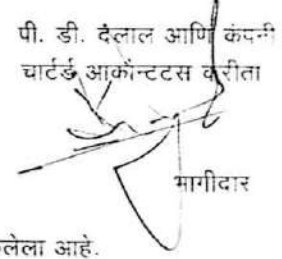 पी. डी. दलाल आणि कंपनी
चार्टर्ड आकौन्टटस करीता
भागीदार
लेला आहे.